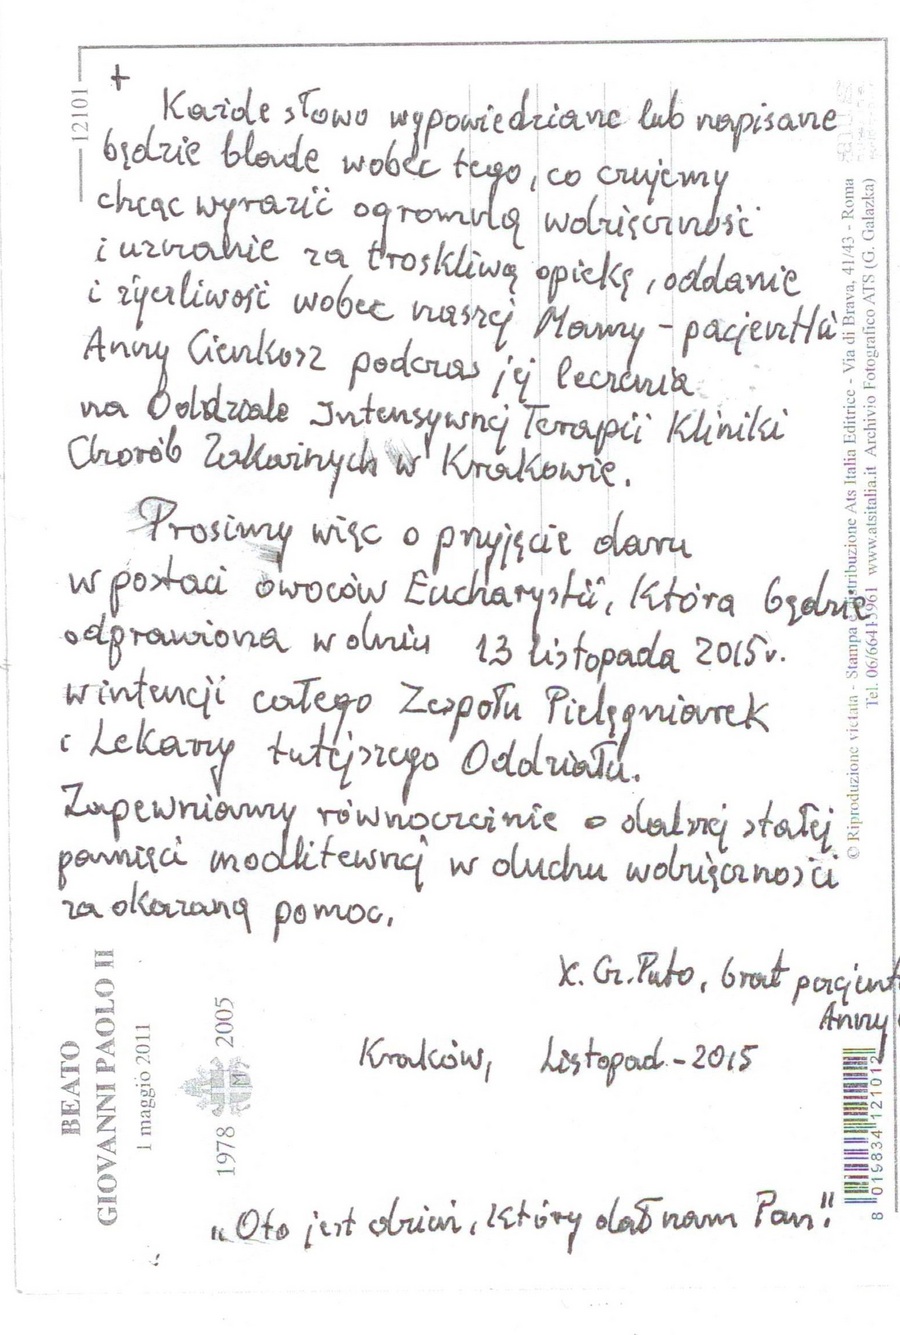 +
Każde słowo wypowiedziane lub napisane
będzie blade wobec tego, co czujemy
chcąc wyrazić ogromną wdzięczność
i uznanie za troskliwą opiekę, oddanie
i życzliwość wobec naszej Mamy - pacjentki
Anny Cienkosz podczas jej leczenia
na Oddziale Intensywnej Terapii Kliniki
Chorób Zakaźnych w Krakowie.
Prosimy więc o przyjęcie daru
w postaci owoców Eucharystii, która będzie
odprawiona w dniu 13 listopada 2015r.
w intencji całego Zespołu Pielęgniarek
i Lekarzy tutejszego Oddziału.
Zapewniamy równocześnie o dalszej stałej
pamięci modlitewnej w duchu wdzięczności
za okazaną pomoc.
X. Gr. Puto, brat pacjent
Anny
Kraków, Listopad - 2015
"Oto jest dzień, który dał nam Pan".
12101
BEATO
GIOVANNI PAOLO II
1 maggio 2011
1978 2005
© Riproduzione vietata - Stampa e distribuzione Ats Italia Editrice - Via di Brava, 41/43 - Roma
Tel. 06/66415961 www.atsitalia.it Archivio Fotografico ATS (G. Galazka)
8 019834 121012